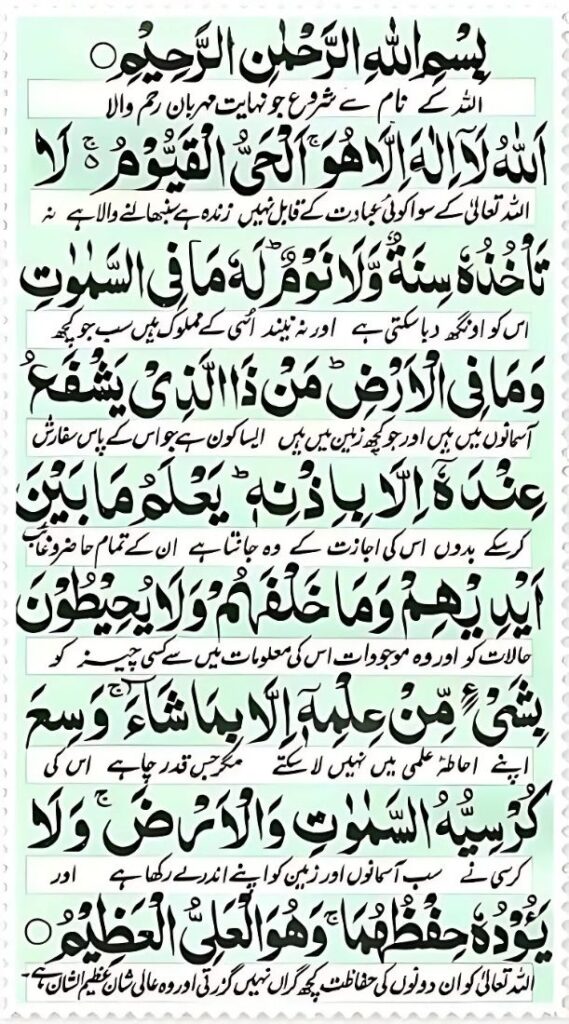 بِسْمِ اللهِ الرَّحْمٰنِ الرَّحِيْمِ ○
اللہ کے نام سے شروع جو نہایت مہربان رحم والا
اَللهُ لَآ اِلٰهَ اِلَّا هُوَ ۚ اَلْحَيُّ الْقَيُّوْمُ ۚ۬ لَا
اللہ تعالیٰ کے سوا کوئی عبادت کے قابل نہیں زندہ ہے سنبھالنے والا ہے نہ
تَاْخُذُهٗ سِنَةٌ وَّلَا نَوْمٌ ؕ لَهٗ مَا فِي السَّمٰوٰتِ
اس کو اونگھ دبا سکتی ہے اور نہ نیند اُسی کے مملوک ہیں سب جو کچھ
وَمَا فِي الْاَرْضِ ؕ مَنْ ذَا الَّذِيْ يَشْفَعُ
آسمانوں میں ہیں اور جو کچھ زمین میں ہیں ایسا کون ہے جو اس کے پاس سفارش
عِنْدَهٗٓ اِلَّا بِاِذْنِهٖ ؕ يَعْلَمُ مَا بَيْنَ
کر سکے بدوں اس کی اجازت کے وہ جانتا ہے ان کے تمام حاضر و غائب
اَيْدِيْهِمْ وَمَا خَلْفَهُمْ وَلَا يُحِيْطُوْنَ
حالات کو اور وہ موجودات اس کی معلومات میں سے کسی چیز کو
بِشَيْءٍ مِّنْ عِلْمِهٖٓ اِلَّا بِمَا شَآءَ ۚ وَسِعَ
اپنے احاطۂ علمی میں نہیں لا سکتے مگر جس قدر چاہے اس کی
كُرْسِيُّهُ السَّمٰوٰتِ وَالْاَرْضَ ۚ وَلَا
کرسی نے سب آسمانوں اور زمین کو اپنے اندر لے رکھا ہے اور
يَـُٔوْدُهٗ حِفْظُهُمَا ۚ وَهُوَ الْعَلِيُّ الْعَظِيْمُ ○
اللہ تعالیٰ کو ان دونوں کی حفاظت کچھ گراں نہیں گزرتی اور وہ عالی شان عظیم الشان ہے۔